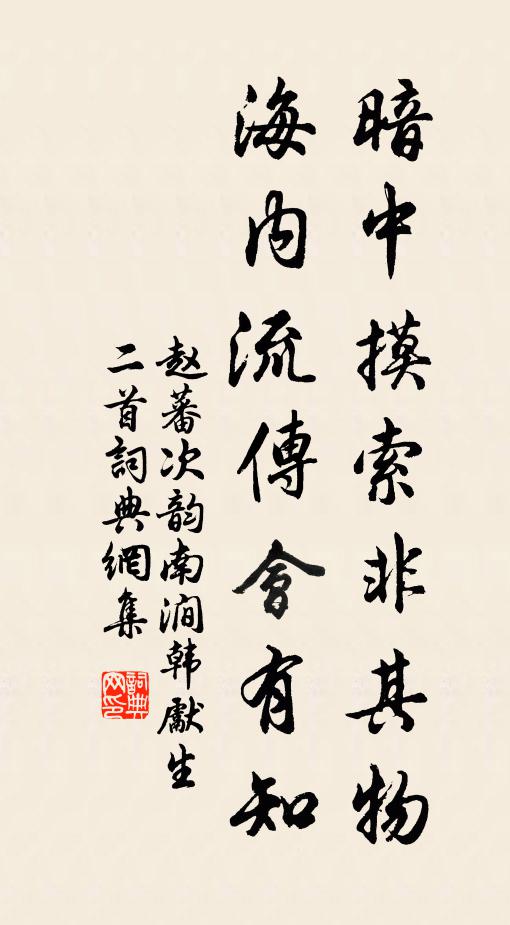 暗中摸索非其物
海内流傳會有知
赵蕃次韵南澗韩獻生
二首詞典網集
詞典网印